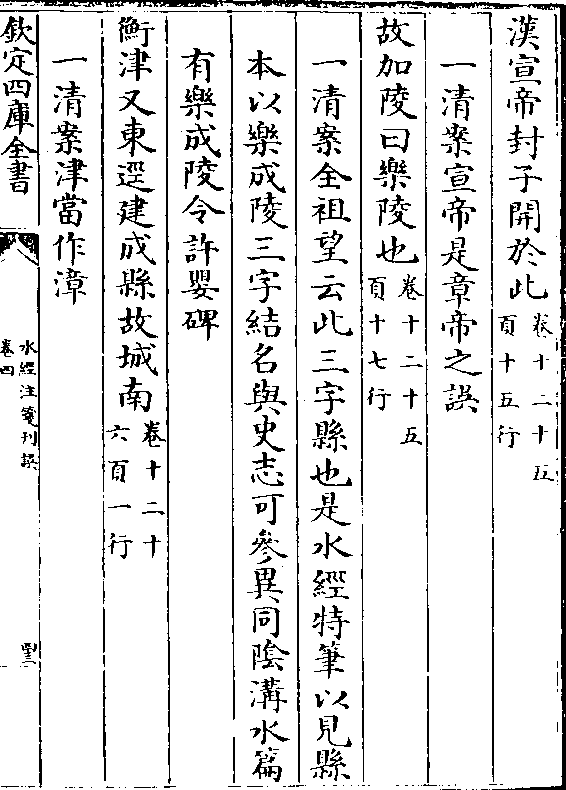 漢宣帝封子開於此卷十二十五
頁十五行
一清案宣帝是章帝之誤
故加陵曰樂陵也卷十二十五
頁十七行
一清案全祖望云此三字縣也是水經特筆以見縣
本以樂成陵三字結名與史志可參異同陰溝水篇
有樂成陵令許嬰碑
衡津又東逕建成縣故城南卷十二十
六頁一行
一清案津當作漳
欽定四庫全書
水經注箋刊誤
卷四